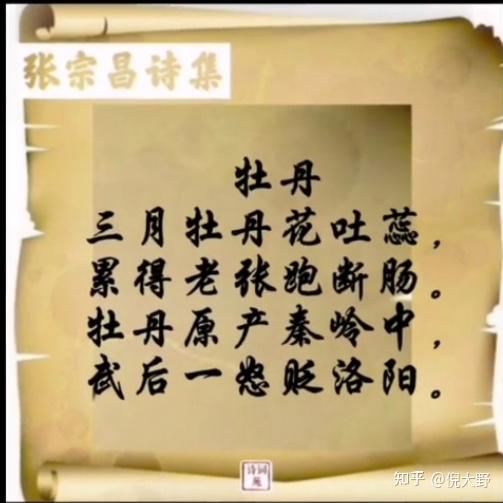 张宗昌诗集
牡丹
三月牡丹花吐蕊，
累得老张跑断肠。
牡丹原产秦岭中，
武后一怒贬洛阳。
诗词苑
知乎 @倪大野